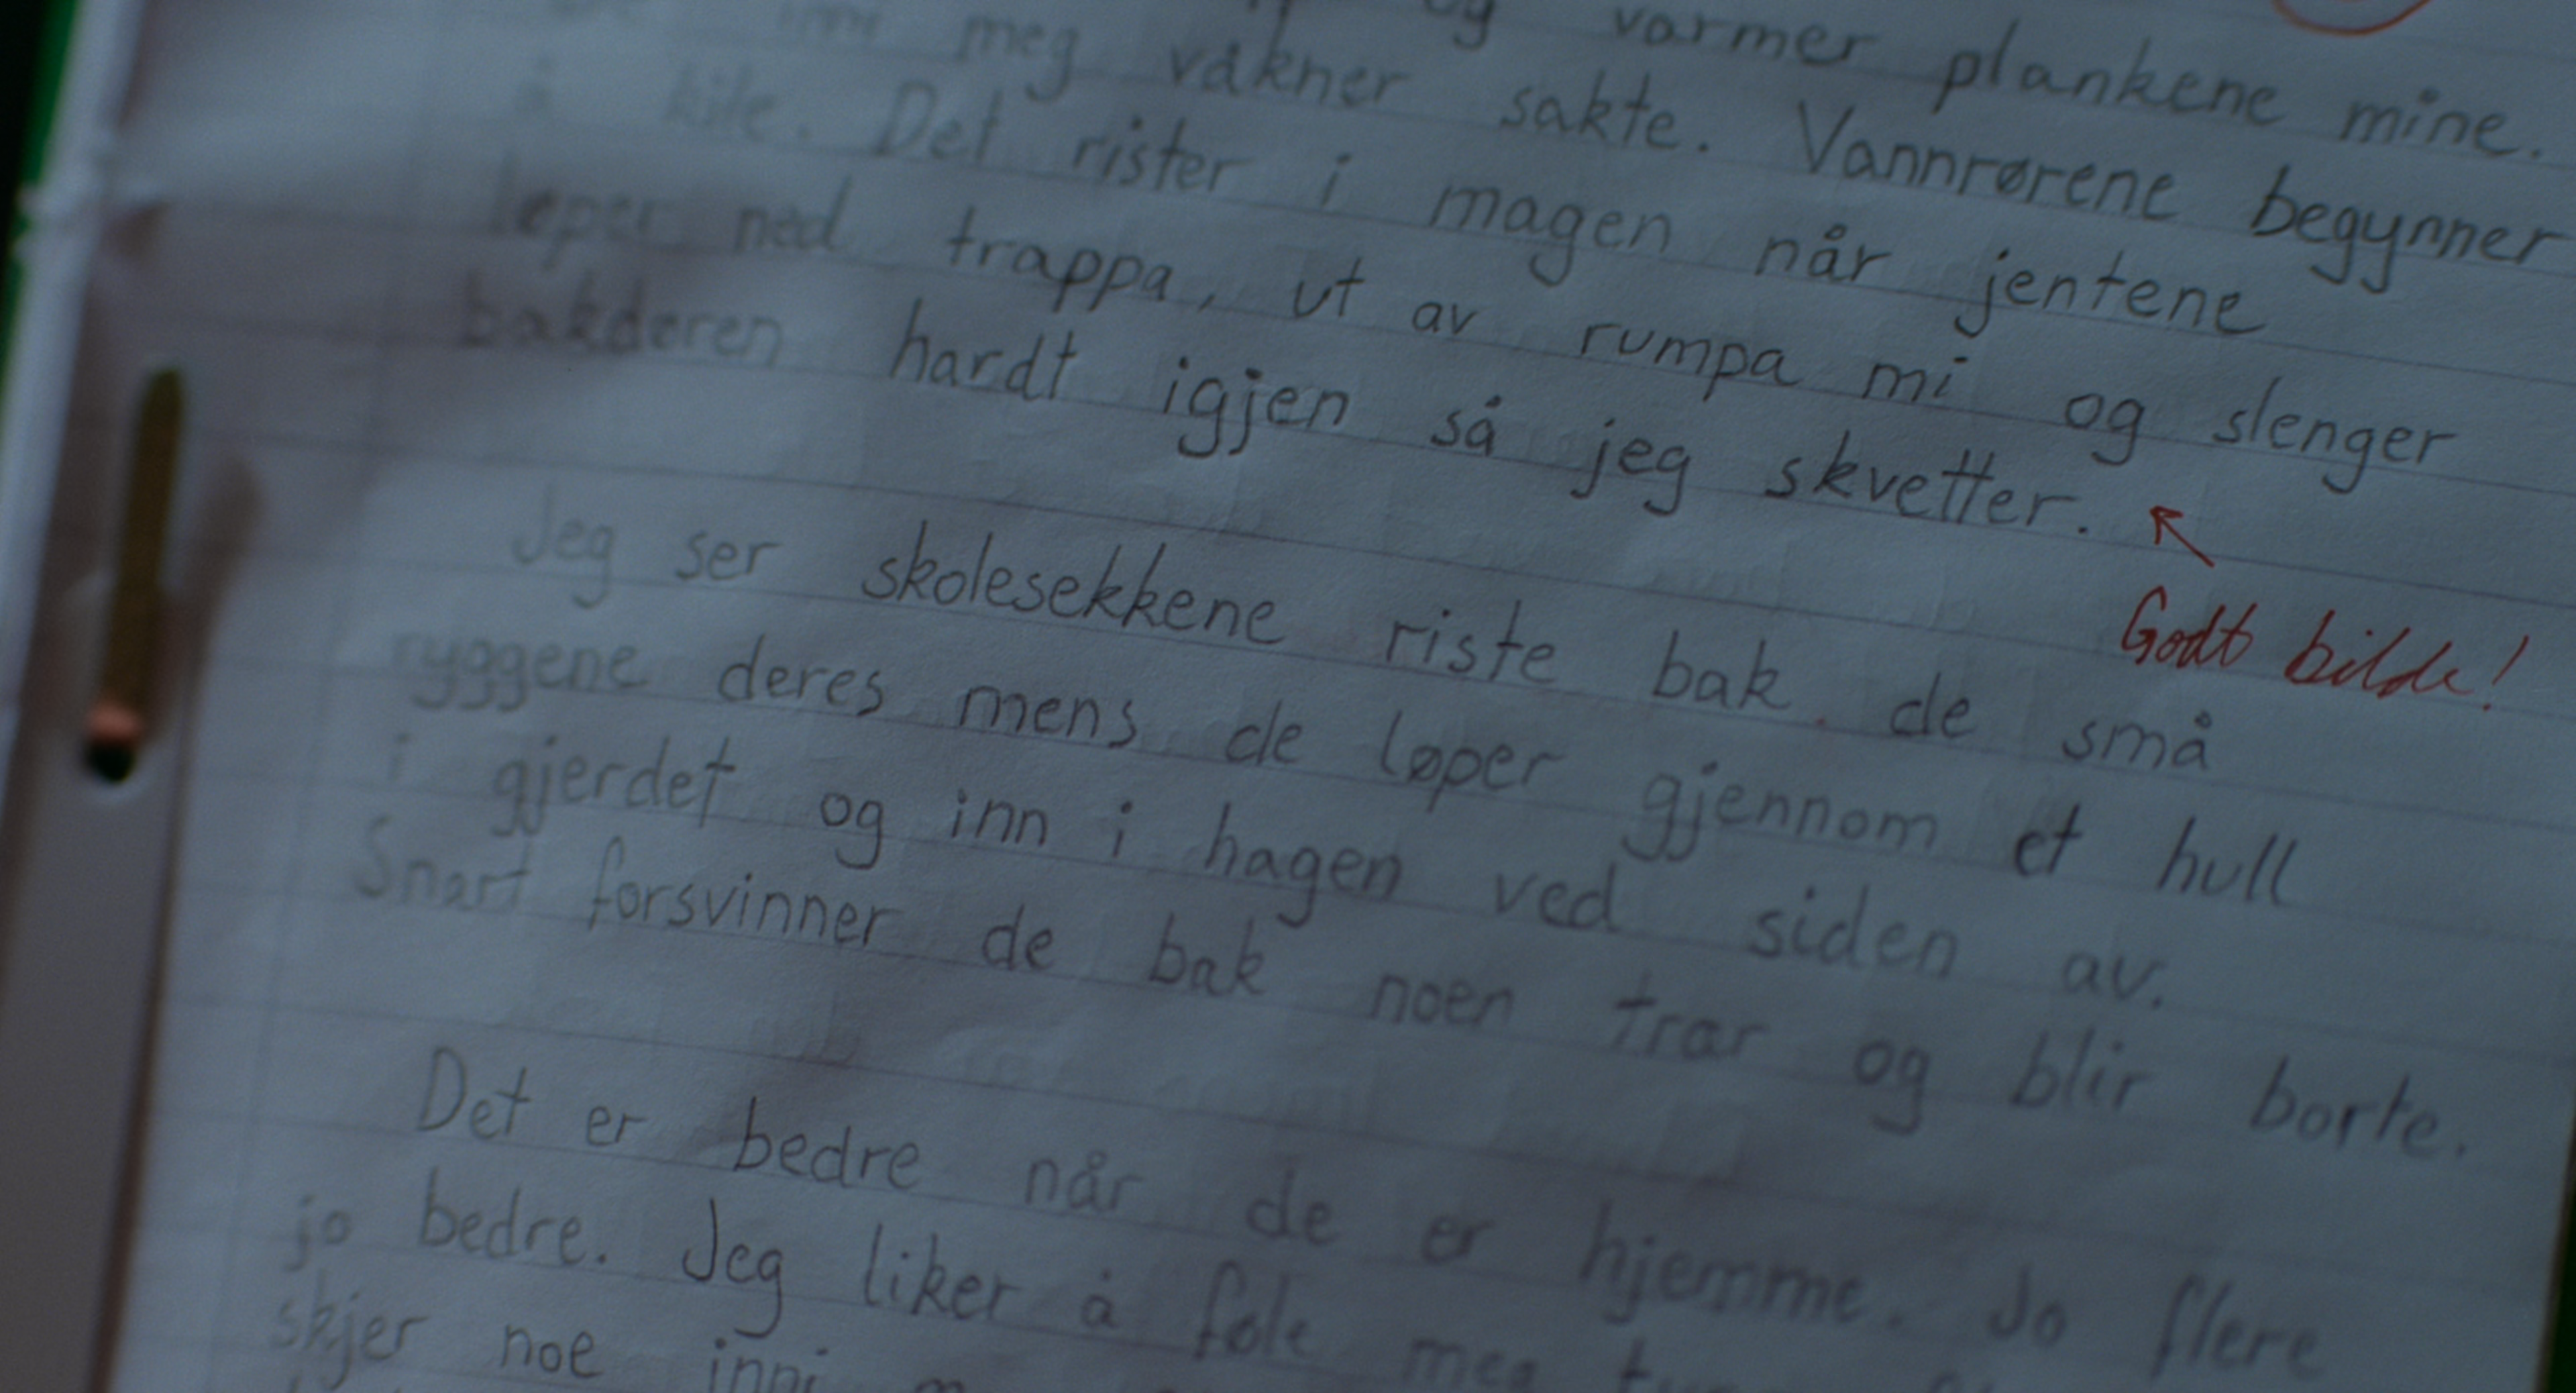 og varmer plankene mine.
inni meg våkner sakte. Vannrørene begynner
å kile. Det rister i magen når jentene
løper ned trappa, ut av rumpa mi og slenger
bakdøren hardt igjen så jeg skvetter.
Godt bilde!
Jeg ser skolesekkene riste bak de små
ryggene deres mens de løper gjennom et hull
i gjerdet og inn i hagen ved siden av.
Snart forsvinner de bak noen trær og blir borte.
Det er bedre når de er hjemme. Jo flere
jo bedre. Jeg liker å føle meg
skjer noe inni